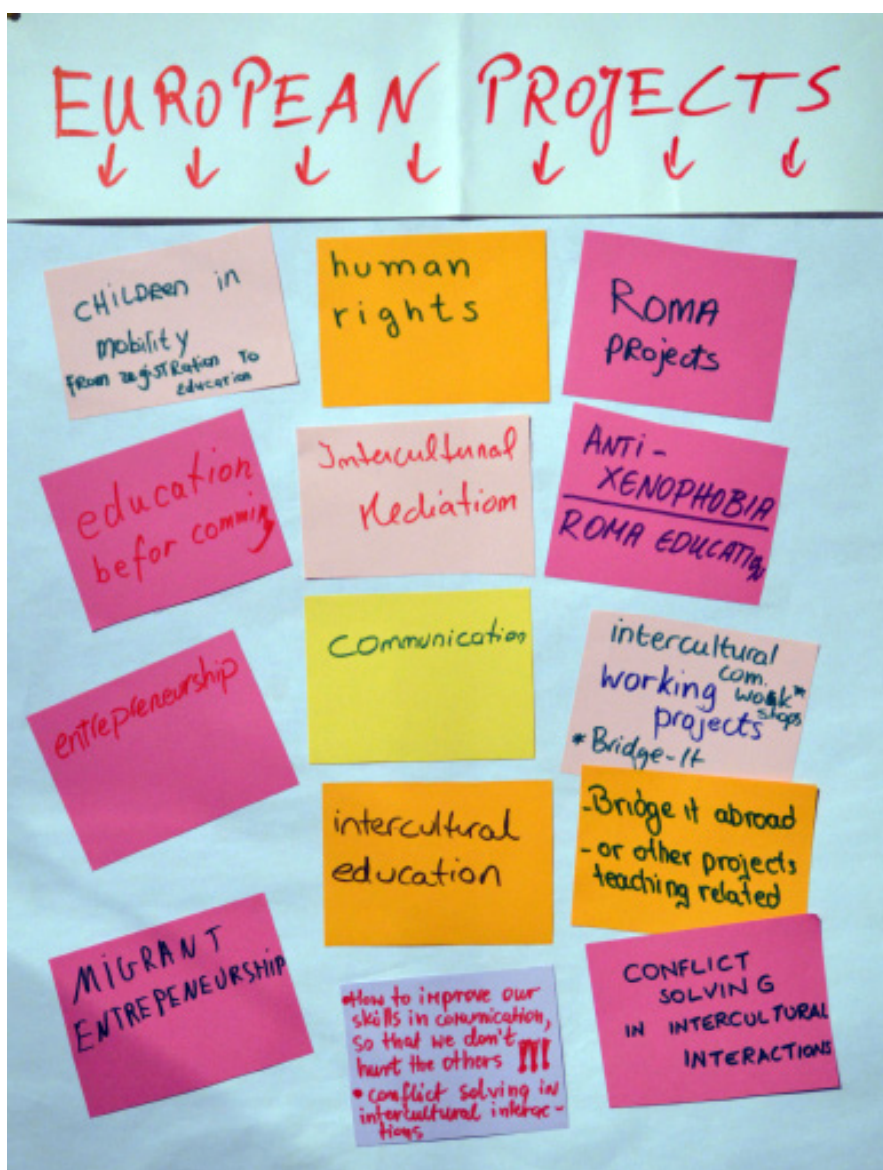 EUROPEAN PROJECTS
CHILDREN in
mobility
FROM REGISTRATION TO
EDUCATION
education
befor comming
entrepreneurship
MIGRANT
ENTREPENEURSHIP
human
rights
Intercultural
Mediation
Communication
intercultural
education
•How to improve our
skills in comunication,
so that we don't
hurt the others !!!
• conflict solving in
intercultural interac-
tions
ROMA
PROjects
ANTI-
XENOPHOBIA
ROMA EDUCATION
intercultural
com.
working work*
projects shops
*Bridge-It
-Bridge it abroad
- or other projects
teaching related
CONFLICT
SOLVING
IN INTERCULTURAL
INTERACTIONS